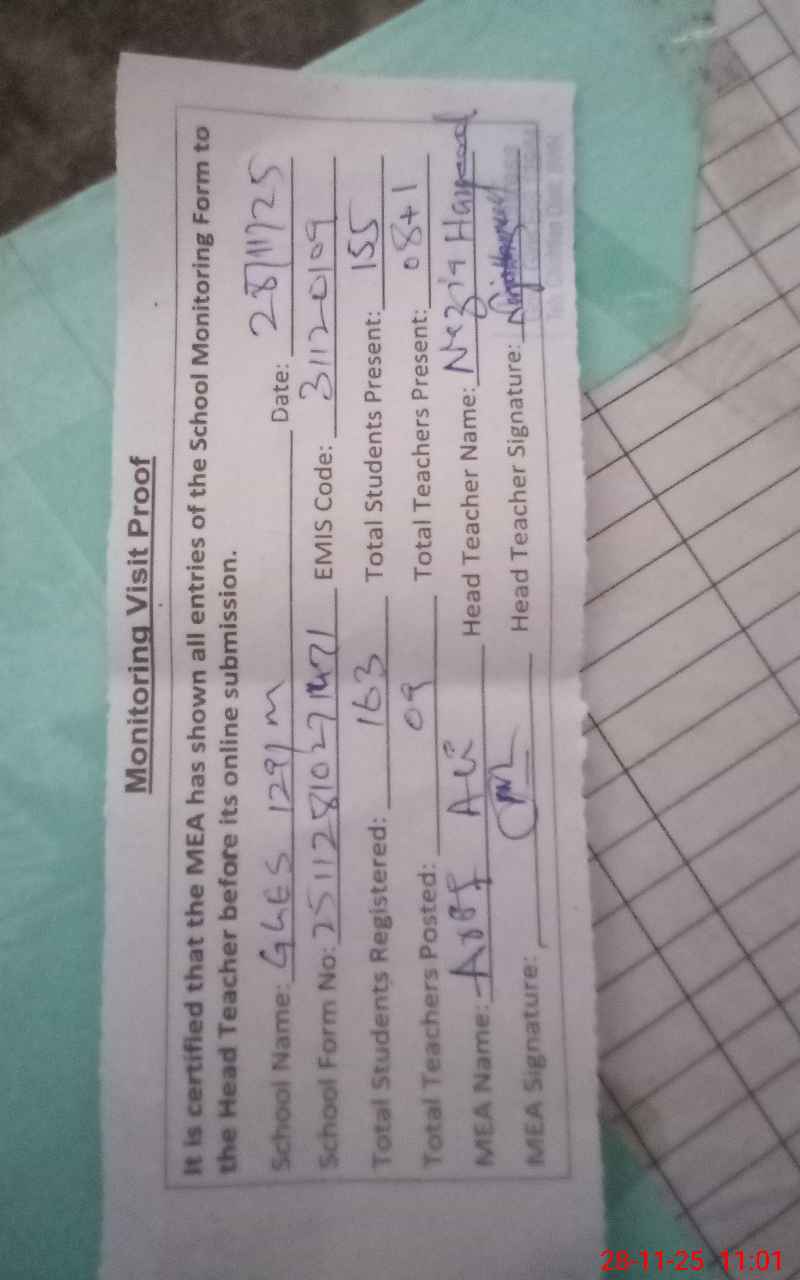 Monitoring Visit Proof
It is certified that the MEA has shown all entries of the School Monitoring Form to
the Head Teacher before its online submission.
School Name: GGES 129/m Date: 28/11/25
School Form No: EMIS Code: 31120109
Total Students Registered: 163 Total Students Present: 155
Total Teachers Posted: 09 Total Teachers Present: 08+1
MEA Name: Ali Head Teacher Name:
MEA Signature: Head Teacher Signature:
28-11-25 11:01